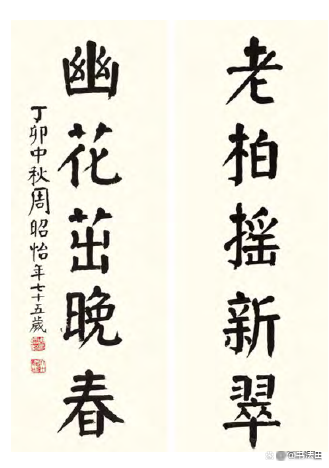 老柏摇新翠
幽花茁晚春
丁卯中秋周昭怡年七十五岁